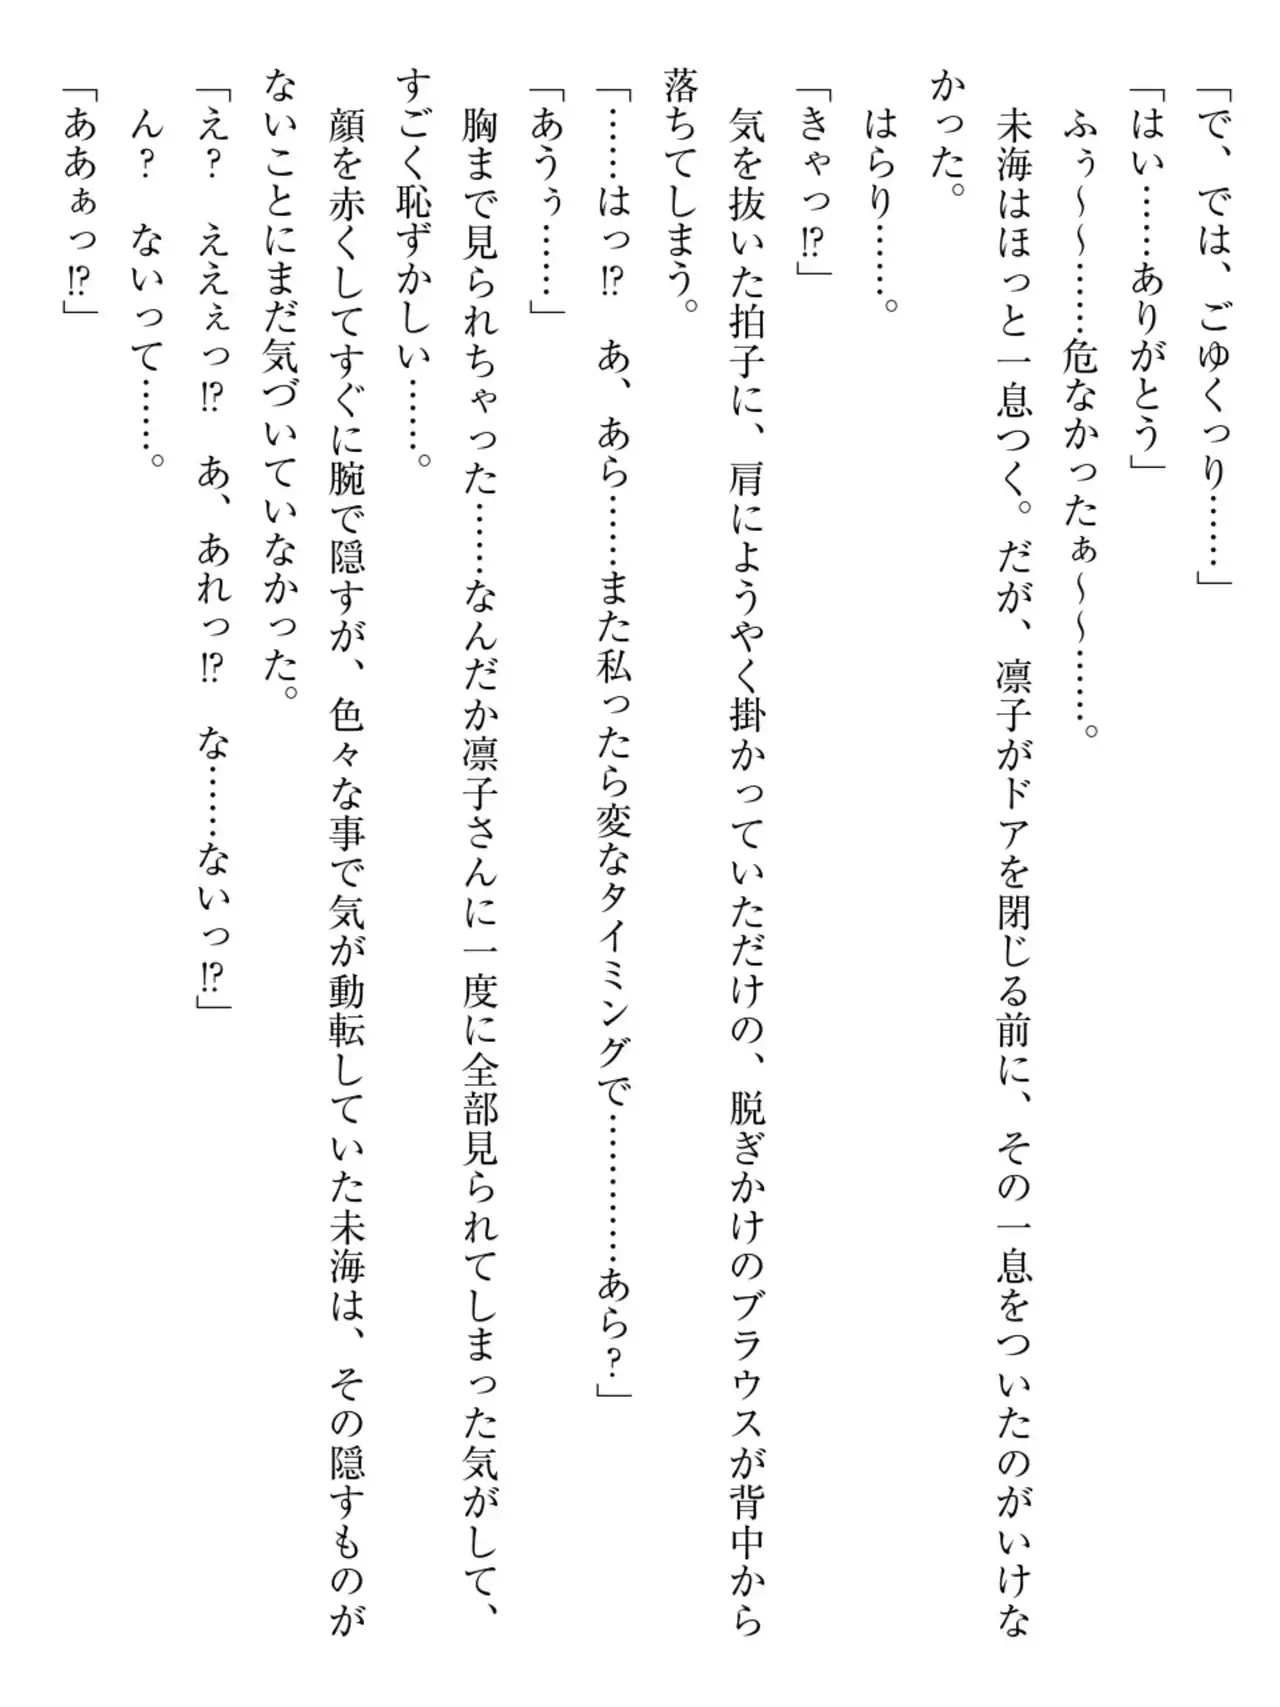 「で、では、ごゆくっり……」
「はい……ありがとう」
ふぅ～～……危なかったぁ～～……。
未海はほっと一息つく。だが、凛子がドアを閉じる前に、その一息をついたのがいけな
かった。
はらり……。
「きゃっ⁉」
気を抜いた拍子に、肩にようやく掛かっていただけの、脱ぎかけのブラウスが背中から
落ちてしまう。
「……はっ⁉　あ、あら……また私ったら変なタイミングで…………あら？」
「あうぅ……」
胸まで見られちゃった……なんだか凛子さんに一度に全部見られてしまった気がして、
すごく恥ずかしい……。
顔を赤くしてすぐに腕で隠すが、色々な事で気が動転していた未海は、その隠すものが
ないことにまだ気づいていなかった。
「え？　ええぇっ⁉　あ、あれっ⁉　な……ないっ⁉」
ん？　ないって……。
「ああぁっ⁉」